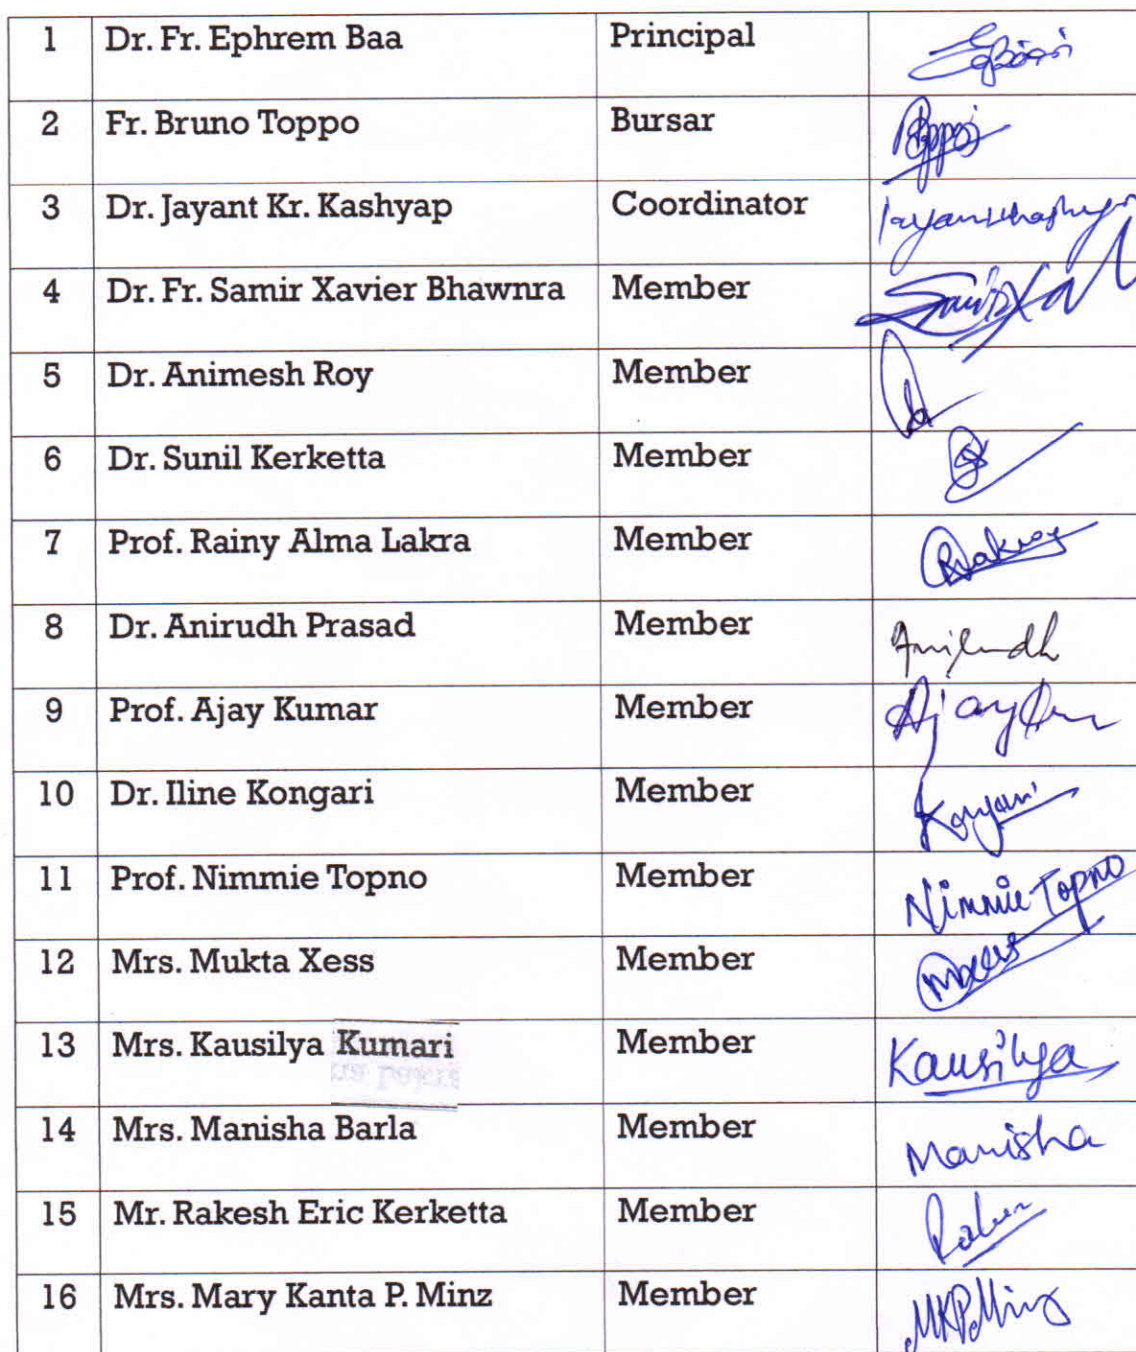 1 Dr. Fr. Ephrem Baa Principal
2 Fr. Bruno Toppo Bursar
3 Dr. Jayant Kr. Kashyap Coordinator
4 Dr. Fr. Samir Xavier Bhawnra Member
5 Dr. Animesh Roy Member
6 Dr. Sunil Kerketta Member
7 Prof. Rainy Alma Lakra Member
8 Dr. Anirudh Prasad Member Anirudh
9 Prof. Ajay Kumar Member
10 Dr. Iline Kongari Member
11 Prof. Nimmie Topno Member Nimmie Topno
12 Mrs. Mukta Xess Member
13 Mrs. Kausilya Kumari Member Kausilya
14 Mrs. Manisha Barla Member Manisha
15 Mr. Rakesh Eric Kerketta Member
16 Mrs. Mary Kanta P. Minz Member MKPMinz